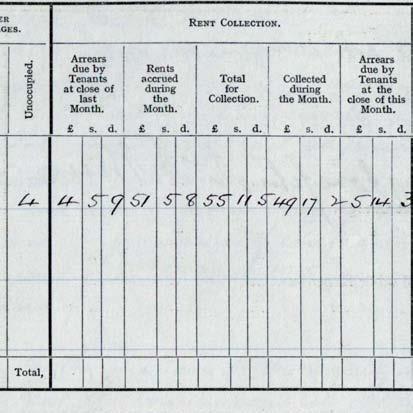 ER
GES.
Unoccupied.
RENT COLLECTION.
Arrears
due by
Tenants
at close of
last
Month.
£ s. d.
Rents
accrued
during
the
Month.
£ s. d.
Total
for
Collection.
£ s. d.
Collected
during
the Month.
£ s. d.
Arrears
due by
Tenants
at the
close of this
Month.
£ s. d.
4 4 5 9 51 5 8 55 11 5 49 17 2 5 14 3
Total,